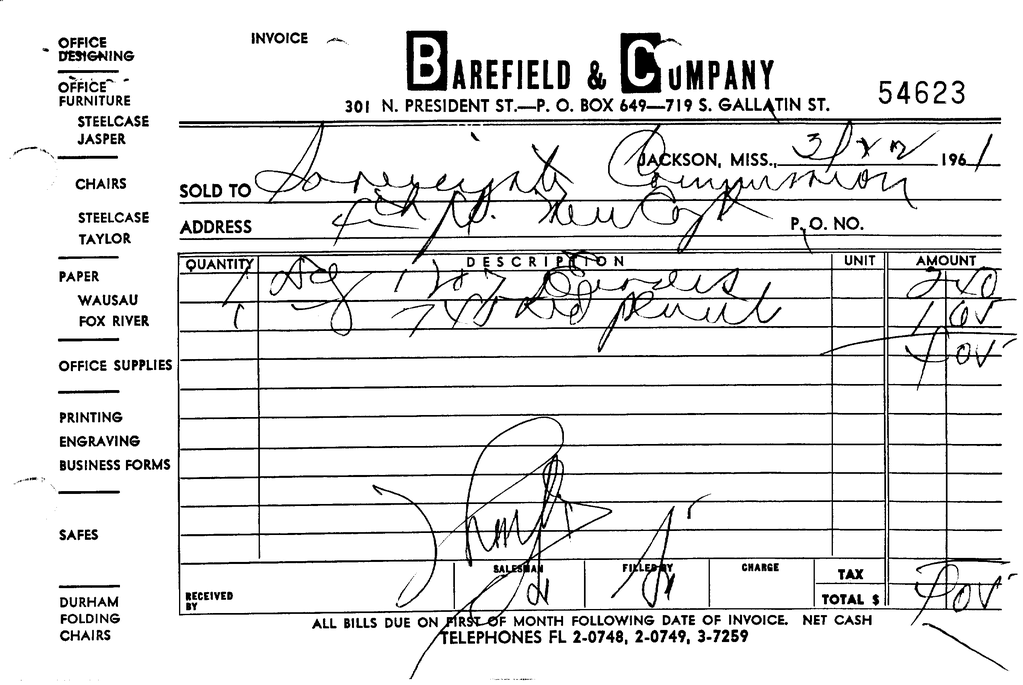 OFFICE DESIGNING
INVOICE
BAREFIELD & COMPANY
54623
OFFICE FURNITURE
301 N. PRESIDENT ST.—P. O. BOX 649—719 S. GALLATIN ST.
STEELCASE
JASPER
JACKSON, MISS., 196 1
CHAIRS
SOLD TO Sovereignty Commission
STEELCASE
TAYLOR
ADDRESS New Capt
P. O. NO.
QUANTITY DESCRIPTION UNIT AMOUNT
PAPER
WAUSAU
1 Binders 240
FOX RIVER
1 Red pencil
OFFICE SUPPLIES
PRINTING
ENGRAVING
BUSINESS FORMS
SAFES
SALESMAN FILLED BY CHARGE TAX
RECEIVED BY
TOTAL $
DURHAM FOLDING CHAIRS
ALL BILLS DUE ON FIRST OF MONTH FOLLOWING DATE OF INVOICE. NET CASH
TELEPHONES FL 2-0748, 2-0749, 3-7259